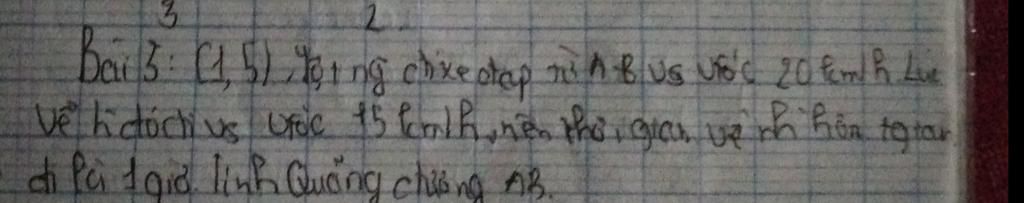 3 2
Bài 3: (1,5) 1 ng đi xe đạp từ A-B vs vtốc 20 km/h. Lúc
về đó vs vtốc 15 km/h, nên thời gian về nh hơn tgian
đi là 1 giờ. Tính Quãng đường AB.